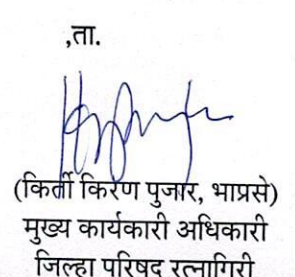 ,ता.
(किर्ती किरण पुजार, भाप्रसे)
मुख्य कार्यकारी अधिकारी
जिल्हा परिषद रत्नागिरी